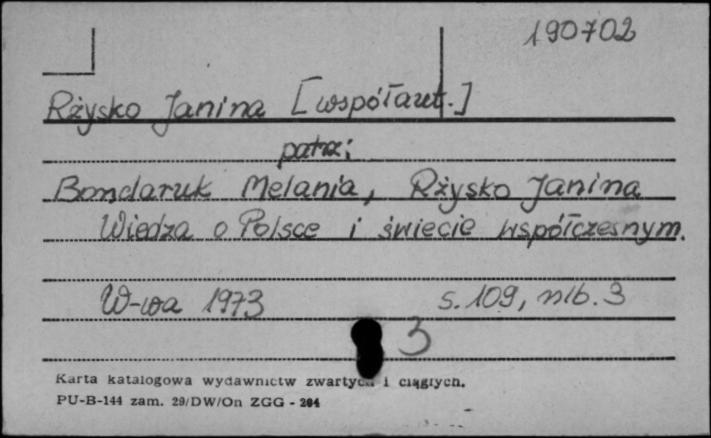 190702
Rżysko Janina [współaut.]
patrz:
Bondaruk Melania, Rżysko Janina
Wiedza o Polsce i świecie współczesnym.
W-wa 1973 s. 109, nlb. 3
3
Karta katalogowa wydawnictw zwartych i ciągłych.
PU-B-144 zam. 29/DW/On ZGG - 294